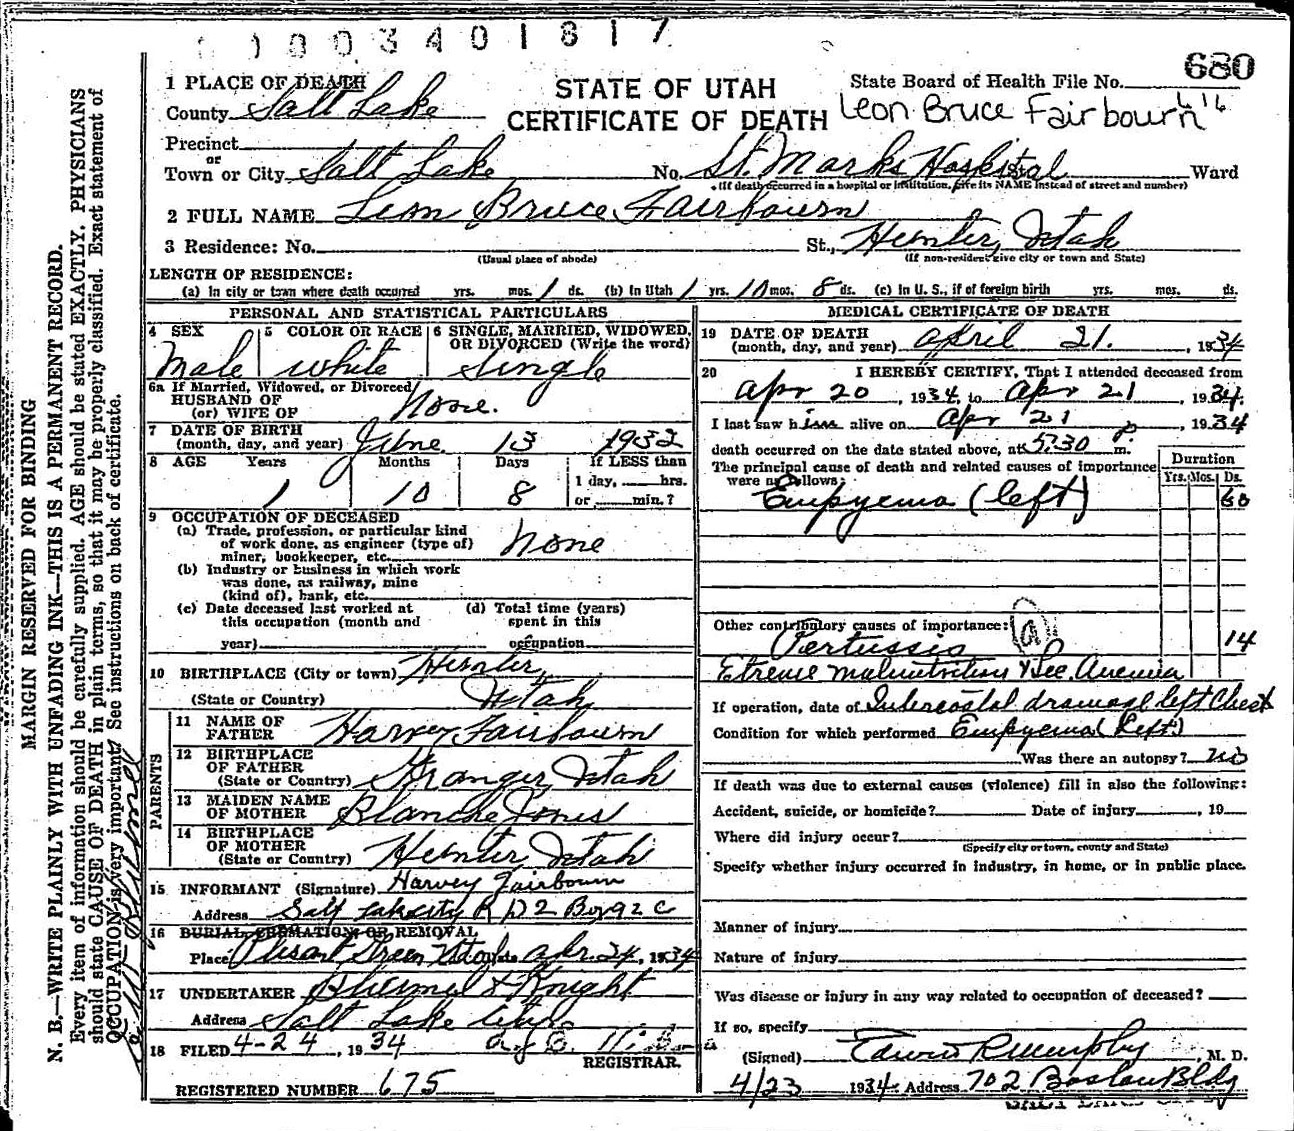 0003401817
680
1 PLACE OF DEATH
County Salt Lake
STATE OF UTAH
CERTIFICATE OF DEATH
State Board of Health File No.
Leon Bruce Fairbourn
Precinct
or
Town or City Salt Lake No. St. Marks Hospital Ward
(If death occurred in a hospital or institution, give its NAME instead of street and number)
2 FULL NAME Leon Bruce Fairbourn
3 Residence: No. St., Hunter, Utah
(Usual place of abode) (If non-resident give city or town and State)
LENGTH OF RESIDENCE:
(a) In city or town where death occurred yrs. mos. 1 ds. (b) In Utah 1 yrs. 10 mos. 8 ds. (c) In U. S., if of foreign birth yrs. mos. ds.
PERSONAL AND STATISTICAL PARTICULARS
4 SEX 5 COLOR OR RACE 6 SINGLE, MARRIED, WIDOWED, OR DIVORCED (Write the word)
Male white Single
6a If Married, Widowed, or Divorced
HUSBAND OF
(or) WIFE OF None.
7 DATE OF BIRTH
(month, day, and year) June 13 1932
8 AGE Years Months Days If LESS than
1 10 8 1 day, hrs.
or min.?
9 OCCUPATION OF DECEASED
(a) Trade, profession, or particular kind
of work done, as engineer (type of)
miner, bookkeeper, etc. None
(b) Industry or business in which work
was done, as railway, mine
(kind of), bank, etc.
(c) Date deceased last worked at (d) Total time (years)
this occupation (month and spent in this
year) occupation
10 BIRTHPLACE (City or town) Hunter,
(State or Country) Utah
PARENTS
11 NAME OF
FATHER Harvey Fairbourn
12 BIRTHPLACE
OF FATHER
(State or Country) Granger, Utah
13 MAIDEN NAME
OF MOTHER Blanche Jones
14 BIRTHPLACE
OF MOTHER
(State or Country) Hunter, Utah
15 INFORMANT (Signature) Harvey Fairbourn
Address Salt Lake City R D 2 Box 92 C
16 BURIAL, CREMATION, OR REMOVAL
Place Plesant Green Utah Date Apr. 24, 1934
17 UNDERTAKER & Knight
Address Salt Lake City
18 FILED 4-24, 1934
REGISTRAR.
REGISTERED NUMBER 675
MEDICAL CERTIFICATE OF DEATH
19 DATE OF DEATH
(month, day, and year) April 21. , 1934
20 I HEREBY CERTIFY, That I attended deceased from
Apr 20, 1934, to Apr 21, 1934.
I last saw him alive on Apr 21, 1934
death occurred on the date stated above, at 5:30 p. m.
The principal cause of death and related causes of importance
were as follows:
Duration
Yrs. Mos. Ds.
Empyema (left) 60
Other contributory causes of importance: (a)
Pertussis 14
Extreme malnutrition & Sec. Anemia
If operation, date of Intercostal drainage left Chest
Condition for which performed Empyema (Left)
Was there an autopsy? No
If death was due to external causes (violence) fill in also the following:
Accident, suicide, or homicide? Date of injury , 19
Where did injury occur?
(Specify city or town, county and State)
Specify whether injury occurred in industry, in home, or in public place.
Manner of injury
Nature of injury
Was disease or injury in any way related to occupation of deceased?
If so, specify
(Signed) Edwin R Murphy, M. D.
4/23 1934 Address 702 Boston Bldg
SALT LAKE CITY
MARGIN RESERVED FOR BINDING
N. B.—WRITE PLAINLY WITH UNFADING INK—THIS IS A PERMANENT RECORD.
Every item of information should be carefully supplied. AGE should be stated EXACTLY. PHYSICIANS
should state CAUSE OF DEATH in plain terms, so that it may be properly classified. Exact statement of
OCCUPATION is very important. See instructions on back of certificate.